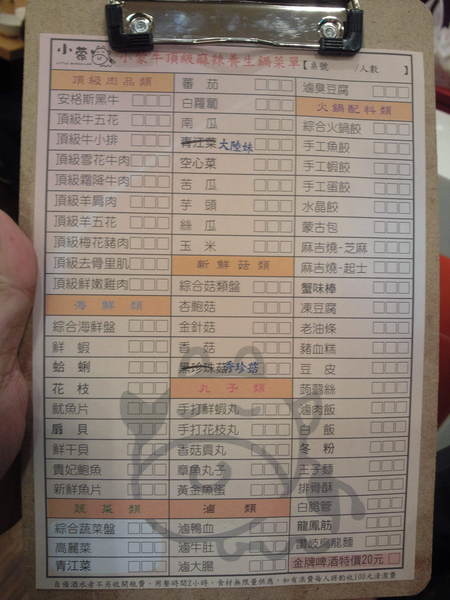 小蒙牛
小蒙牛頂級麻辣養生鍋菜單【桌號 /人數 】
頂級肉品類
安格斯黑牛
頂級牛五花
頂級牛小排
頂級雪花牛肉
頂級霜降牛肉
頂級羊肩肉
頂級羊五花
頂級梅花豬肉
頂級去骨里肌
頂級鮮嫩雞肉
海鮮類
綜合海鮮盤
鮮蝦
蛤蜊
花枝
魷魚片
扇貝
鮮干貝
貴妃鮑魚
新鮮魚片
蔬菜類
綜合蔬菜盤
高麗菜
青江菜
番茄
白蘿蔔
南瓜
青江菜 大陸妹
空心菜
苦瓜
芋頭
絲瓜
玉米
新鮮菇類
綜合菇類盤
杏鮑菇
金針菇
香菇
黑珍珠菇 秀珍菇
丸子類
手打鮮蝦丸
手打花枝丸
香菇貢丸
章魚丸子
黃金魚蛋
滷類
滷鴨血
滷牛肚
滷大腸
滷臭豆腐
火鍋配料類
綜合火鍋餃
手工魚餃
手工蝦餃
手工蛋餃
水晶餃
蒙古包
麻吉燒-芝麻
麻吉燒-起士
蟹味棒
凍豆腐
老油條
豬血糕
豆皮
蒟蒻絲
滷肉飯
白飯
冬粉
王子麵
排骨酥
白脆管
龍鳳筋
讚岐烏龍麵
金牌啤酒特價20元
自備酒水者不另收開瓶費，用餐時間2小時，食材無限量供應，如有浪費每人將酌收100元清潔費